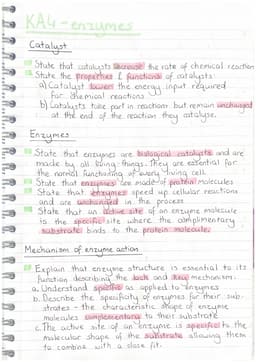 KA4 - enzymes
Catalyst
State that catalysts increase the rate of chemical reaction
State the properties & functions of catalysts:
a) Catalyst lowers the energy input required
for chemical reactions
b) Catalysts take part in reactions but remain unchanged
at the end of the reaction they catalyse.
Enzymes
State that enzymes are biological catalysts and are
made by all living things. They are essential for
the normal functioning of every living cell.
State that enzymes are made of protein molecules
State that enzymes speed up cellular reactions
and are unchanged in the process
State that an active site of an enzyme molecule
is the specific site where the complimentary
substrate binds to the protein molecule.
Mechanism of enzyme action
Explain that enzyme structure is essential to its
function describing the lock and key mechanism:
a. Understand specific as applied to enzymes
b. Describe the specificity of enzymes for their sub-
strates - the characteristic shape of enzyme
molecules complementary to their substrate
c. The active site of an enzyme is specific to the
molecular shape of the substrate allowing them
to combine with a close fit.